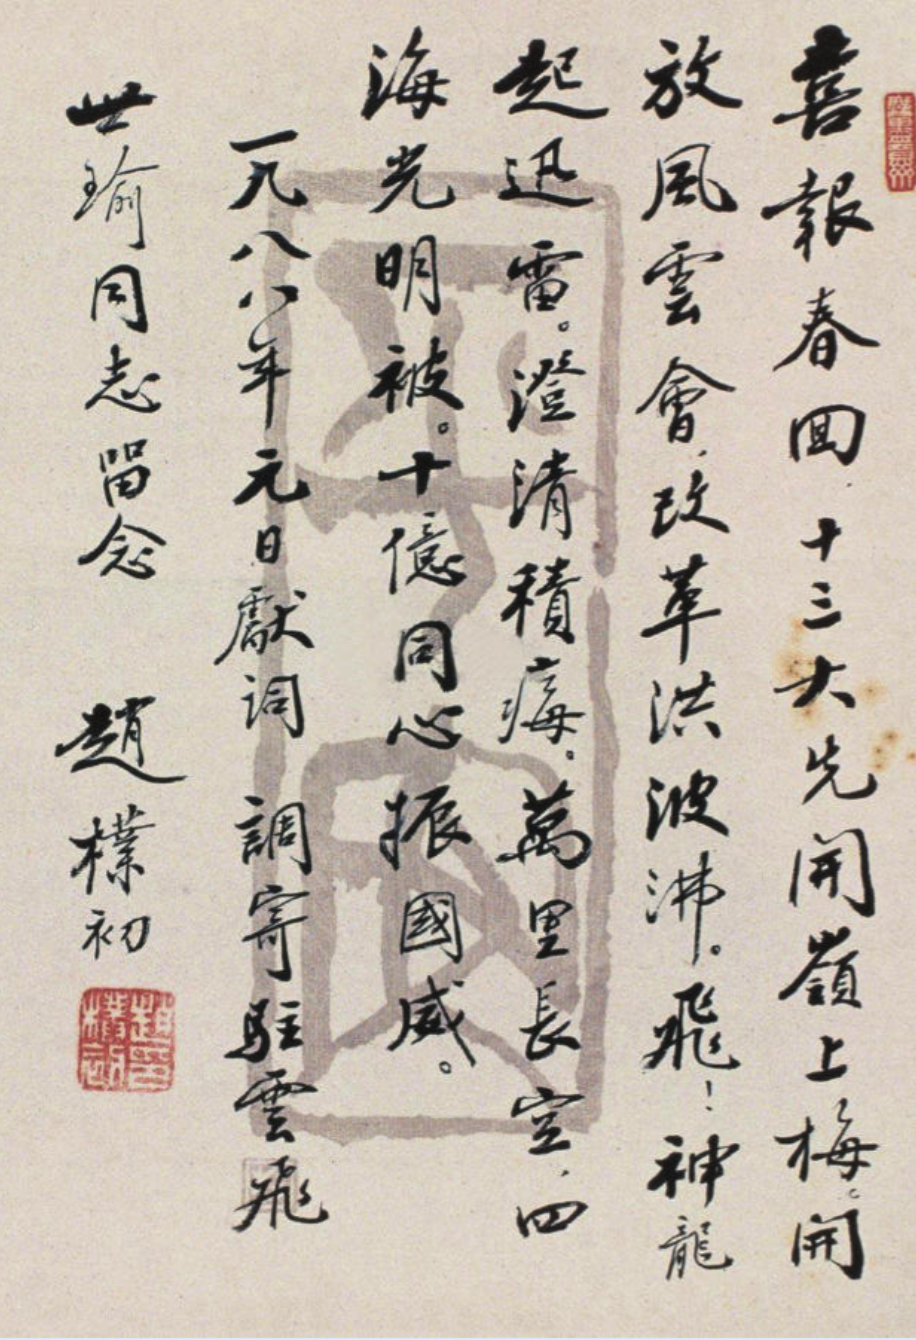 喜報春回、十三大先開嶺上梅。開
放風雲會、改革洪波沸。飛！神龍
起迅雷。澄清積痗。萬里長空、四
海光明被。十億同心振國威。
一九八八年元日獻詞 調寄駐雲飛
世瑜同志留念 趙樸初
趙樸初